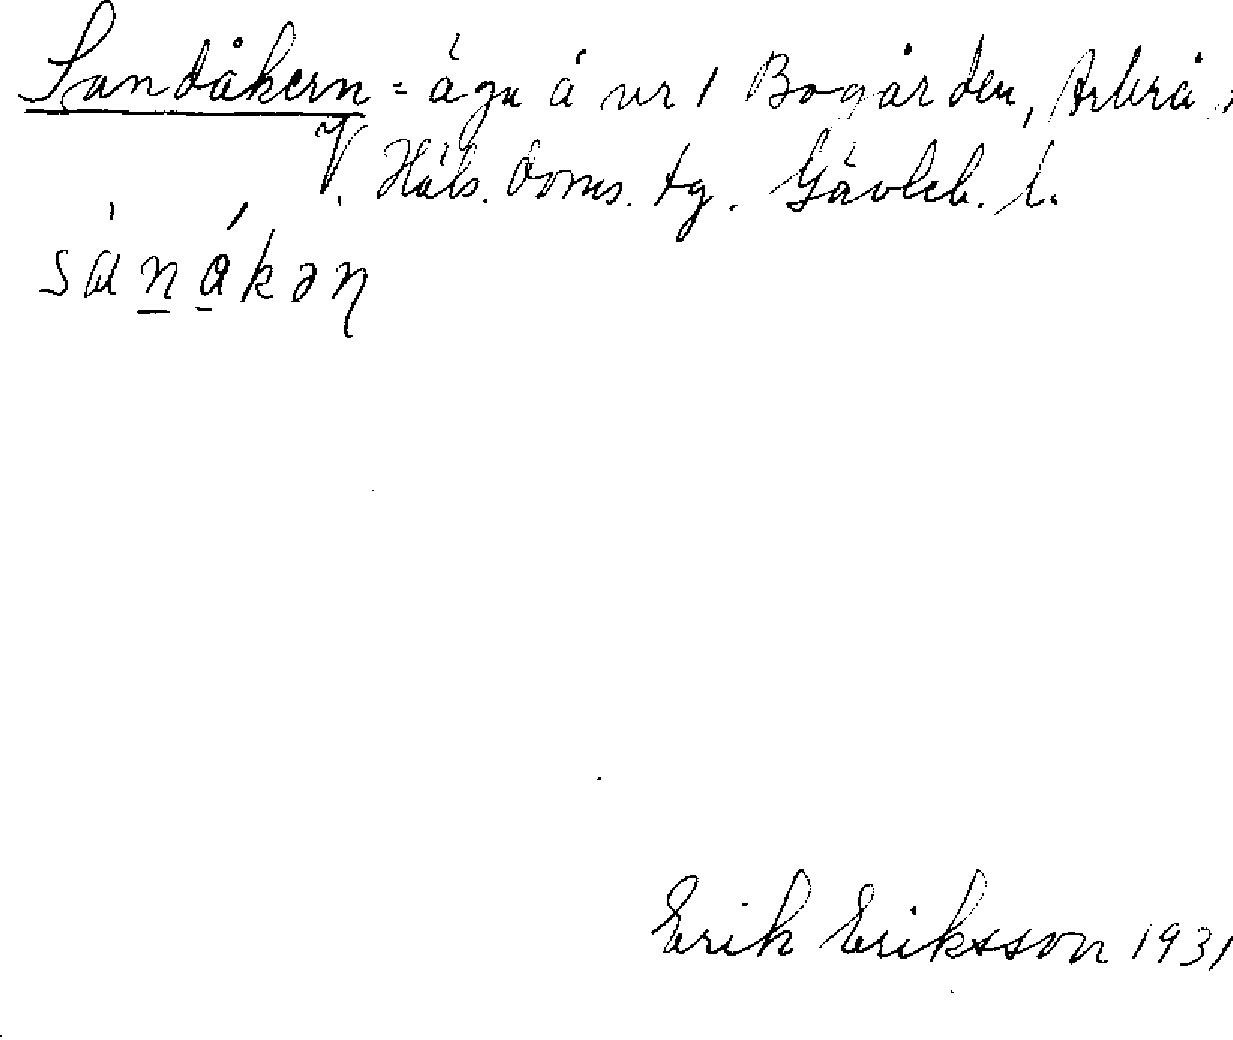 Sandåkern = ägn å nr 1 Bogården, Arbrå s
V. Häls. doms. tg. Gävleb. l.
sánákəɳ
Erik Eriksson 1931